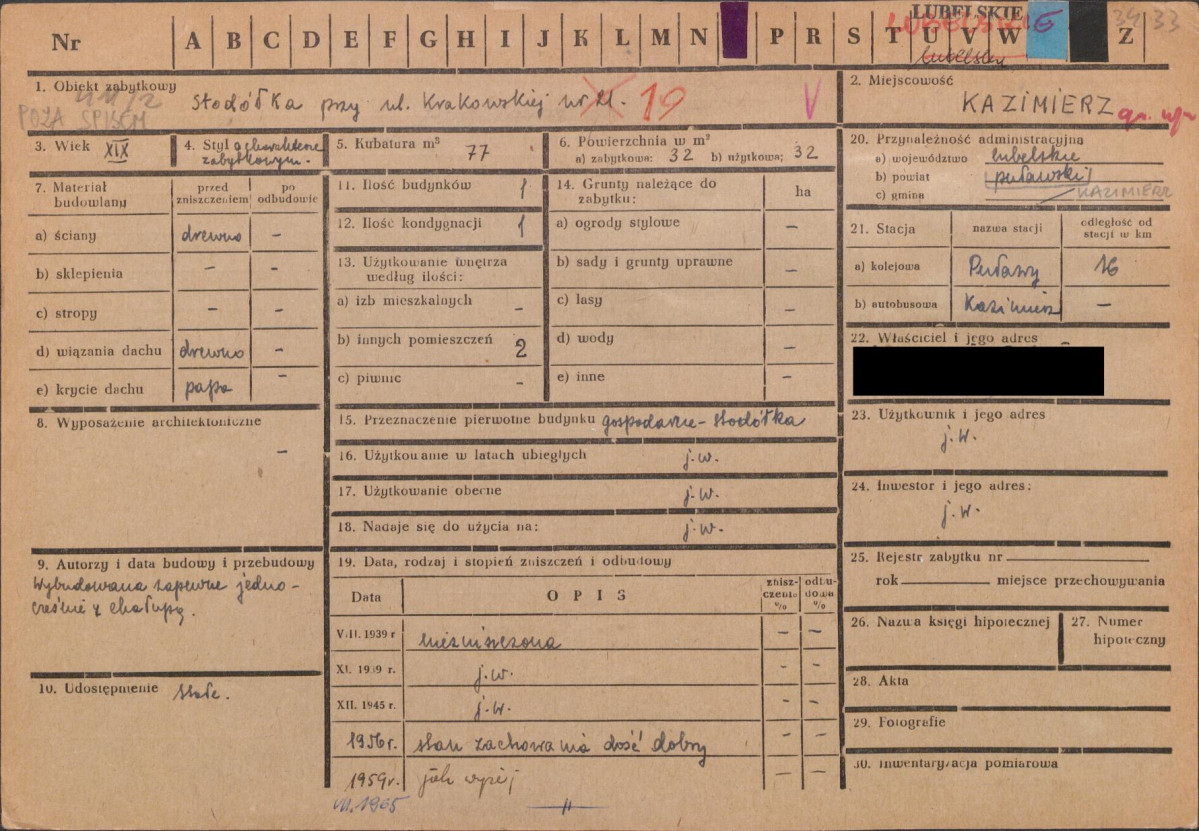 Nr A B C D E F G H I J K L M N P R S T U V W Z
LUBELSKIE
LUBELSKIE
lubelskie
34 33
1. Obiekt zabytkowy
Stodółka przy ul. Krakowskiej nr 21. 19 V
POZA SPISEM
2. Miejscowość
KAZIMIERZ
3. Wiek XIX
4. Styl o charakterze zabytkowym.
5. Kubatura m³ 77
6. Powierzchnia w m²
a) zabytkowa: 32 b) użytkowa; 32
20. Przynależność administracyjna
a) województwo lubelskie
b) powiat puławski
c) gmina KAZIMIERZ
7. Materiał budowlany
przed zniszczeniem
po odbudowie
a) ściany drewno -
b) sklepienia - -
c) stropy - -
d) wiązania dachu drewno -
e) krycie dachu papa -
11. Ilość budynków 1
12. Ilość kondygnacji 1
13. Użytkowanie wnętrza według ilości:
a) izb mieszkalnych -
b) innych pomieszczeń 2
c) piwnic -
14. Grunty należące do zabytku:
ha
a) ogrody stylowe -
b) sady i grunty uprawne -
c) lasy -
d) wody -
e) inne -
21. Stacja
nazwa stacji
odległość od stacji w km
a) kolejowa Puławy 16
b) autobusowa Kazimierz -
22. Właściciel i jego adres
8. Wyposażenie architektoniczne
-
15. Przeznaczenie pierwotne budynku gospodarcze - stodółka
16. Użytkowanie w latach ubiegłych j.w.
17. Użytkowanie obecne j.w.
18. Nadaje się do użycia na: j.w.
23. Użytkownik i jego adres
j.w.
24. Inwestor i jego adres:
j.w.
9. Autorzy i data budowy i przebudowy
Wybudowana zapewne jedno-
cześnie z chałupą.
10. Udostępnienie stałe.
19. Data, rodzaj i stopień zniszczeń i odbudowy
Data
OPIS
znisz-czenia %
odbu-dowa %
VIII. 1939 r niezniszczona - -
XI. 1939 r. j.w. - -
XII. 1945 r. j.w. - -
1956r. stan zachowania dość dobry - -
1959r. jak wyżej - -
VII.1965 —"—
25. Rejestr zabytku nr
rok miejsce przechowywania
26. Nazwa księgi hipotecznej
27. Numer hipoteczny
28. Akta
29. Fotografie
30. Inwentaryzacja pomiarowa